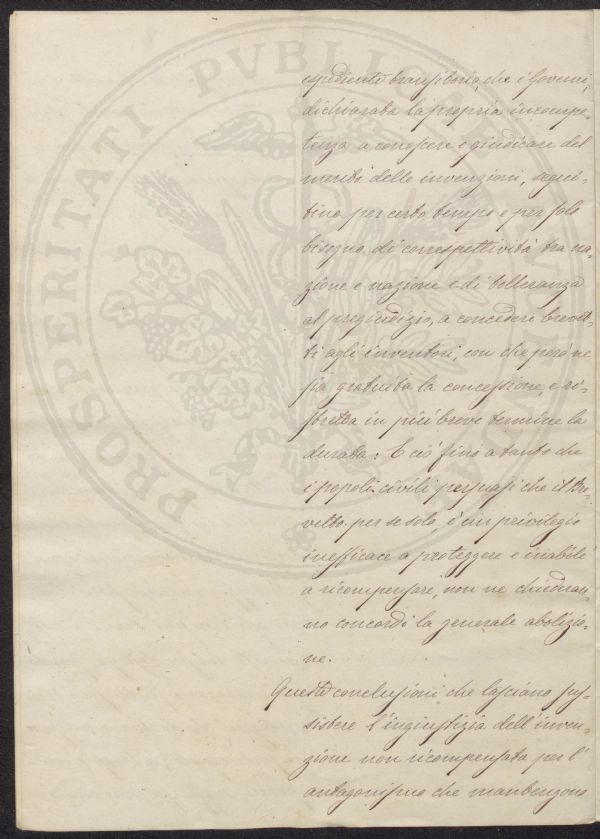 PROSPERITATI PVBLICAE
espediente transitorio, che i Governi,
dichiarata la propria incompe-
tenza a conoscere e giudicare del
merito delle invenzioni, segui-
tino per certo tempo e per solo
bisogno di correspettività tra na-
zione e nazione e di tolleranza
al pregiudizio, a concedere brevet-
ti agli inventori, con che però ne
sia gratuita la concessione, e ri-
stretta in più breve termine la
durata: E ciò fino a tanto che
i popoli civili persuasi che il Bre-
vetto per se solo, è un privilegio
inefficace a proteggere e inabile
a ricompensare, non ne chiederan-
no concordi la generale abolizio-
ne.
Queste conclusioni che lasciano sus-
sistere l'ingiustizia dell'inven-
zione non ricompensata per l'
antagonismo che mantengono